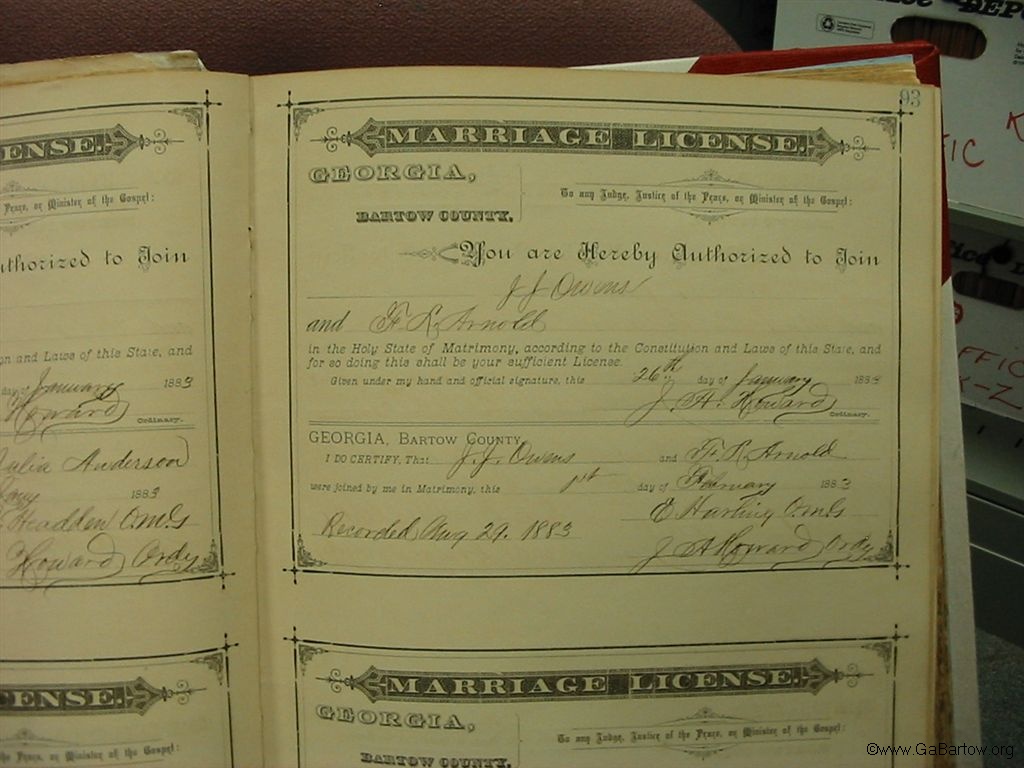 93
MARRIAGE LICENSE.
GEORGIA,
BARTOW COUNTY.
To any Judge, Justice of the Peace, or Minister of the Gospel:
You are Hereby Authorized to Join
J J Owens
and F. R. Arnold
in the Holy State of Matrimony, according to the Constitution and Laws of this State, and
for so doing this shall be your sufficient License.
Given under my hand and official signature, this 26th day of January 1883
J. A. Howard
Ordinary.
GEORGIA, BARTOW COUNTY.
I DO CERTIFY, That J. J. Owens and F. R. Arnold
were joined by me in Matrimony, this 1st day of February 1883
Recorded Aug 29. 1883
J A Howard Ordy
MARRIAGE LICENSE.
GEORGIA,
BARTOW COUNTY.
To any Judge, Justice of the Peace, or Minister of the Gospel:
ENSE.
Peace, or Minister of the Gospel:
uthorized to Join
on and Laws of this State, and
day of January 1883
Howard
Ordinary.
Julia Anderson
1883
Headden
Howard Ordy
ENSE.
Peace, or Minister of the Gospel:
FIC
K
FFIC
K-Z
©www.GaBartow.org